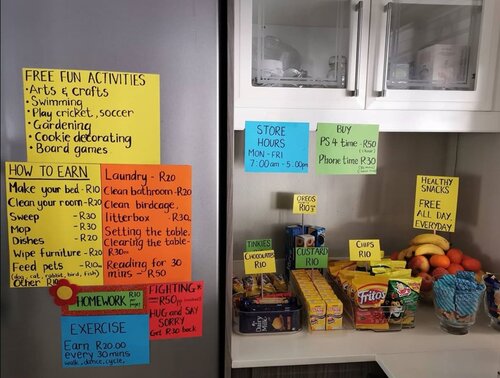 FREE FUN ACTIVITIES
• Arts & crafts
• Swimming
• Play cricket, soccer
• Gardening
• Cookie decorating
• Board games
HOW TO EARN
Make your bed - R10
Clean your room - R20
Sweep - R30
Mop - R30
Dishes - R20
Wipe furniture - R20
Feed pets - R10
(dog, cat, rabbit, bird, fish)
Other R10
Laundry - R20
Clean bathroom - R20
Clean birdcage,
litterbox - R30
Setting the table,
Clearing the table -
R30
Reading for 30
mins - R50
HOMEWORK R10
FIGHTING*
R50
HUG AND SAY
SORRY
Get R30 back
EXERCISE
Earn R20.00
every 30 mins
walk, dance, cycle,
STORE
HOURS
MON - FRI
7:00am - 5:00pm
BUY
PS4 time - R50
Phone time R30
OREOS
R10
TINKIES
CHOCOLATES
R10
CUSTARD
R10
CHIPS
R10
HEALTHY
SNACKS
FREE
ALL DAY.
EVERYDAY
Dairy Milk
Fritos